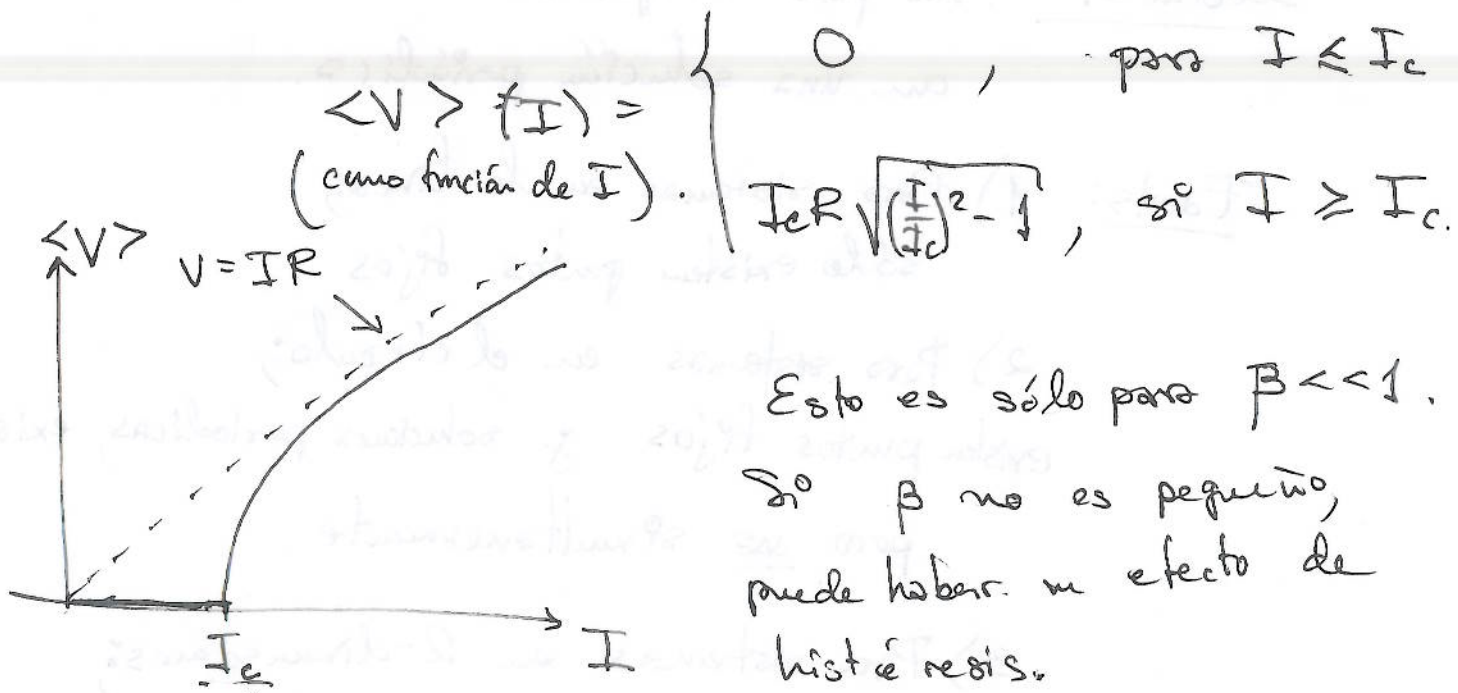 <V> (I) = { 0 , para I ≤ I_c
(como función de I). I_cR√((I/I_c)² - 1) , si I ≥ I_c.
<V>
V = IR
I_c
I
Esto es sólo para β << 1.
Si β no es pequeño,
puede haber un efecto de
histéresis.